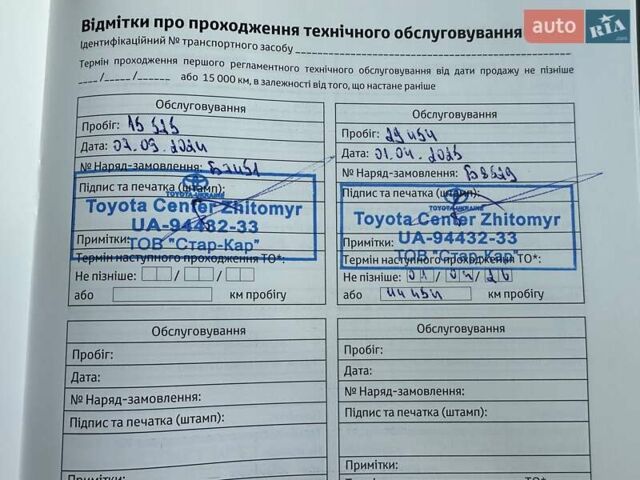 Відмітки про проходження технічного обслуговування
auto RIA.com
Ідентифікаційний № транспортного засобу
Термін проходження першого регламентного технічного обслуговування від дати продажу не пізніше
___/___/_____ або 15 000 км, в залежності від того, що настане раніше
Обслуговування
Пробіг: 15 525
Дата: 07.09.2024
№ Наряд-замовлення:
Підпис та печатка (штамп):
TOYOTA-UKRAINE
Toyota Center Zhitomyr
UA-94432-33
ТОВ "Стар-Кар"
Примітки:
Термін наступного проходження ТО*:
Не пізніше: / /
або км пробігу
Обслуговування
Пробіг: 29 454
Дата: 01.04.2025
№ Наряд-замовлення:
Підпис та печатка (штамп):
TOYOTA-UKRAINE
Toyota Center Zhitomyr
UA-94432-33
ТОВ "Стар-Кар"
Примітки:
Термін наступного проходження ТО*:
Не пізніше: 01 / 04 / 26
або 44 454 км пробігу
Обслуговування
Пробіг:
Дата:
№ Наряд-замовлення:
Підпис та печатка (штамп):
Примітки:
Обслуговування
Пробіг:
Дата:
№ Наряд-замовлення:
Підпис та печатка (штамп):
Примітки: